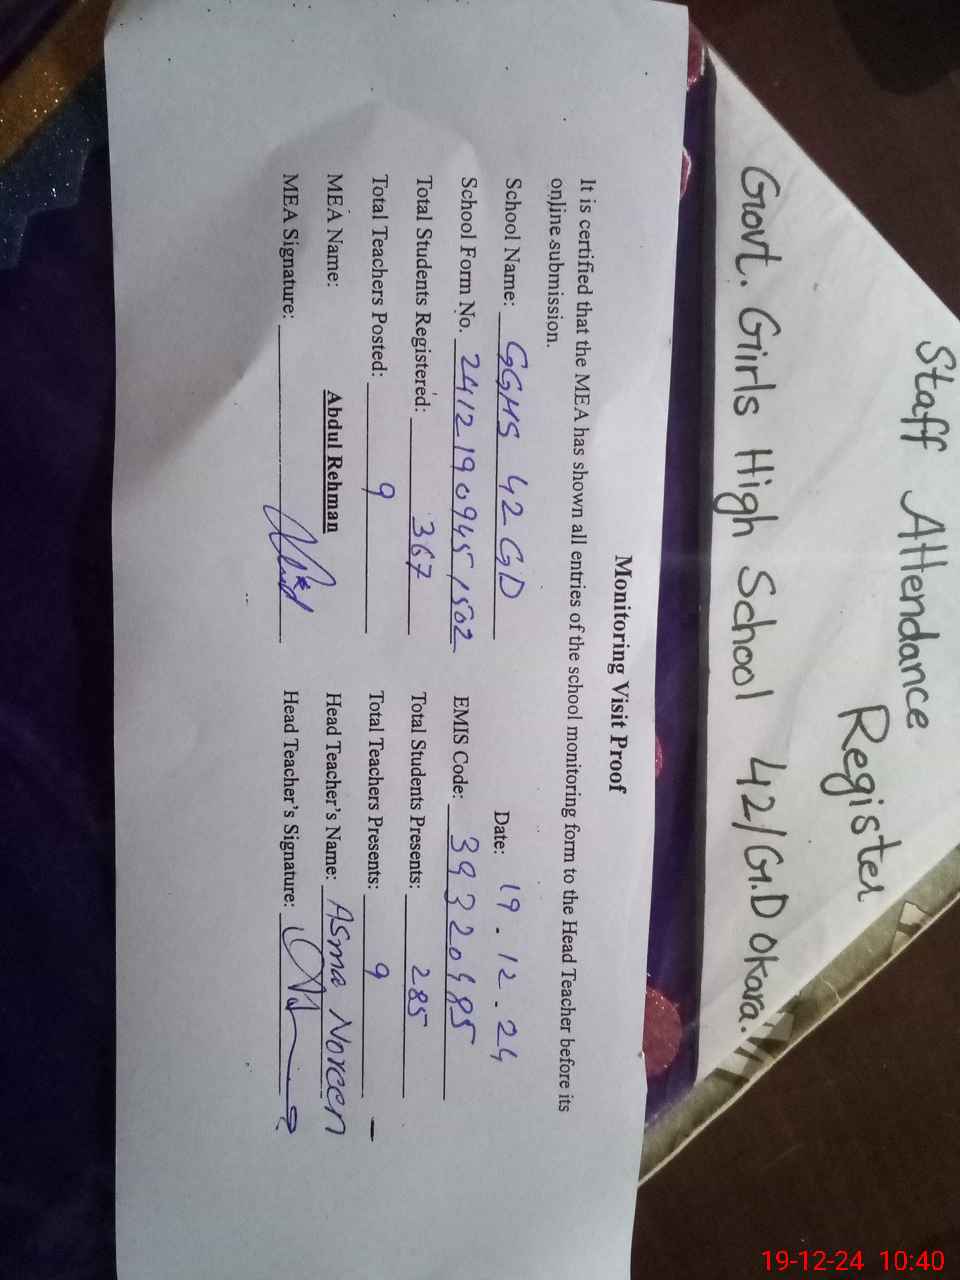 Staff Attendance
Register
Govt. Girls High School 42/G.D Okara.
Monitoring Visit Proof
It is certified that the MEA has shown all entries of the school monitoring form to the Head Teacher before its
online submission.
Date: 19.12.24
School Name: GGHS 42 GD
School Form No. 24121909451502 EMIS Code: 39320485
Total Students Registered: 367 Total Students Presents: 285
Total Teachers Posted: 9 Total Teachers Presents: 9
MEA Name: Abdul Rehman Head Teacher's Name: Asma Noreen
MEA Signature: Head Teacher's Signature:
19-12-24 10:40